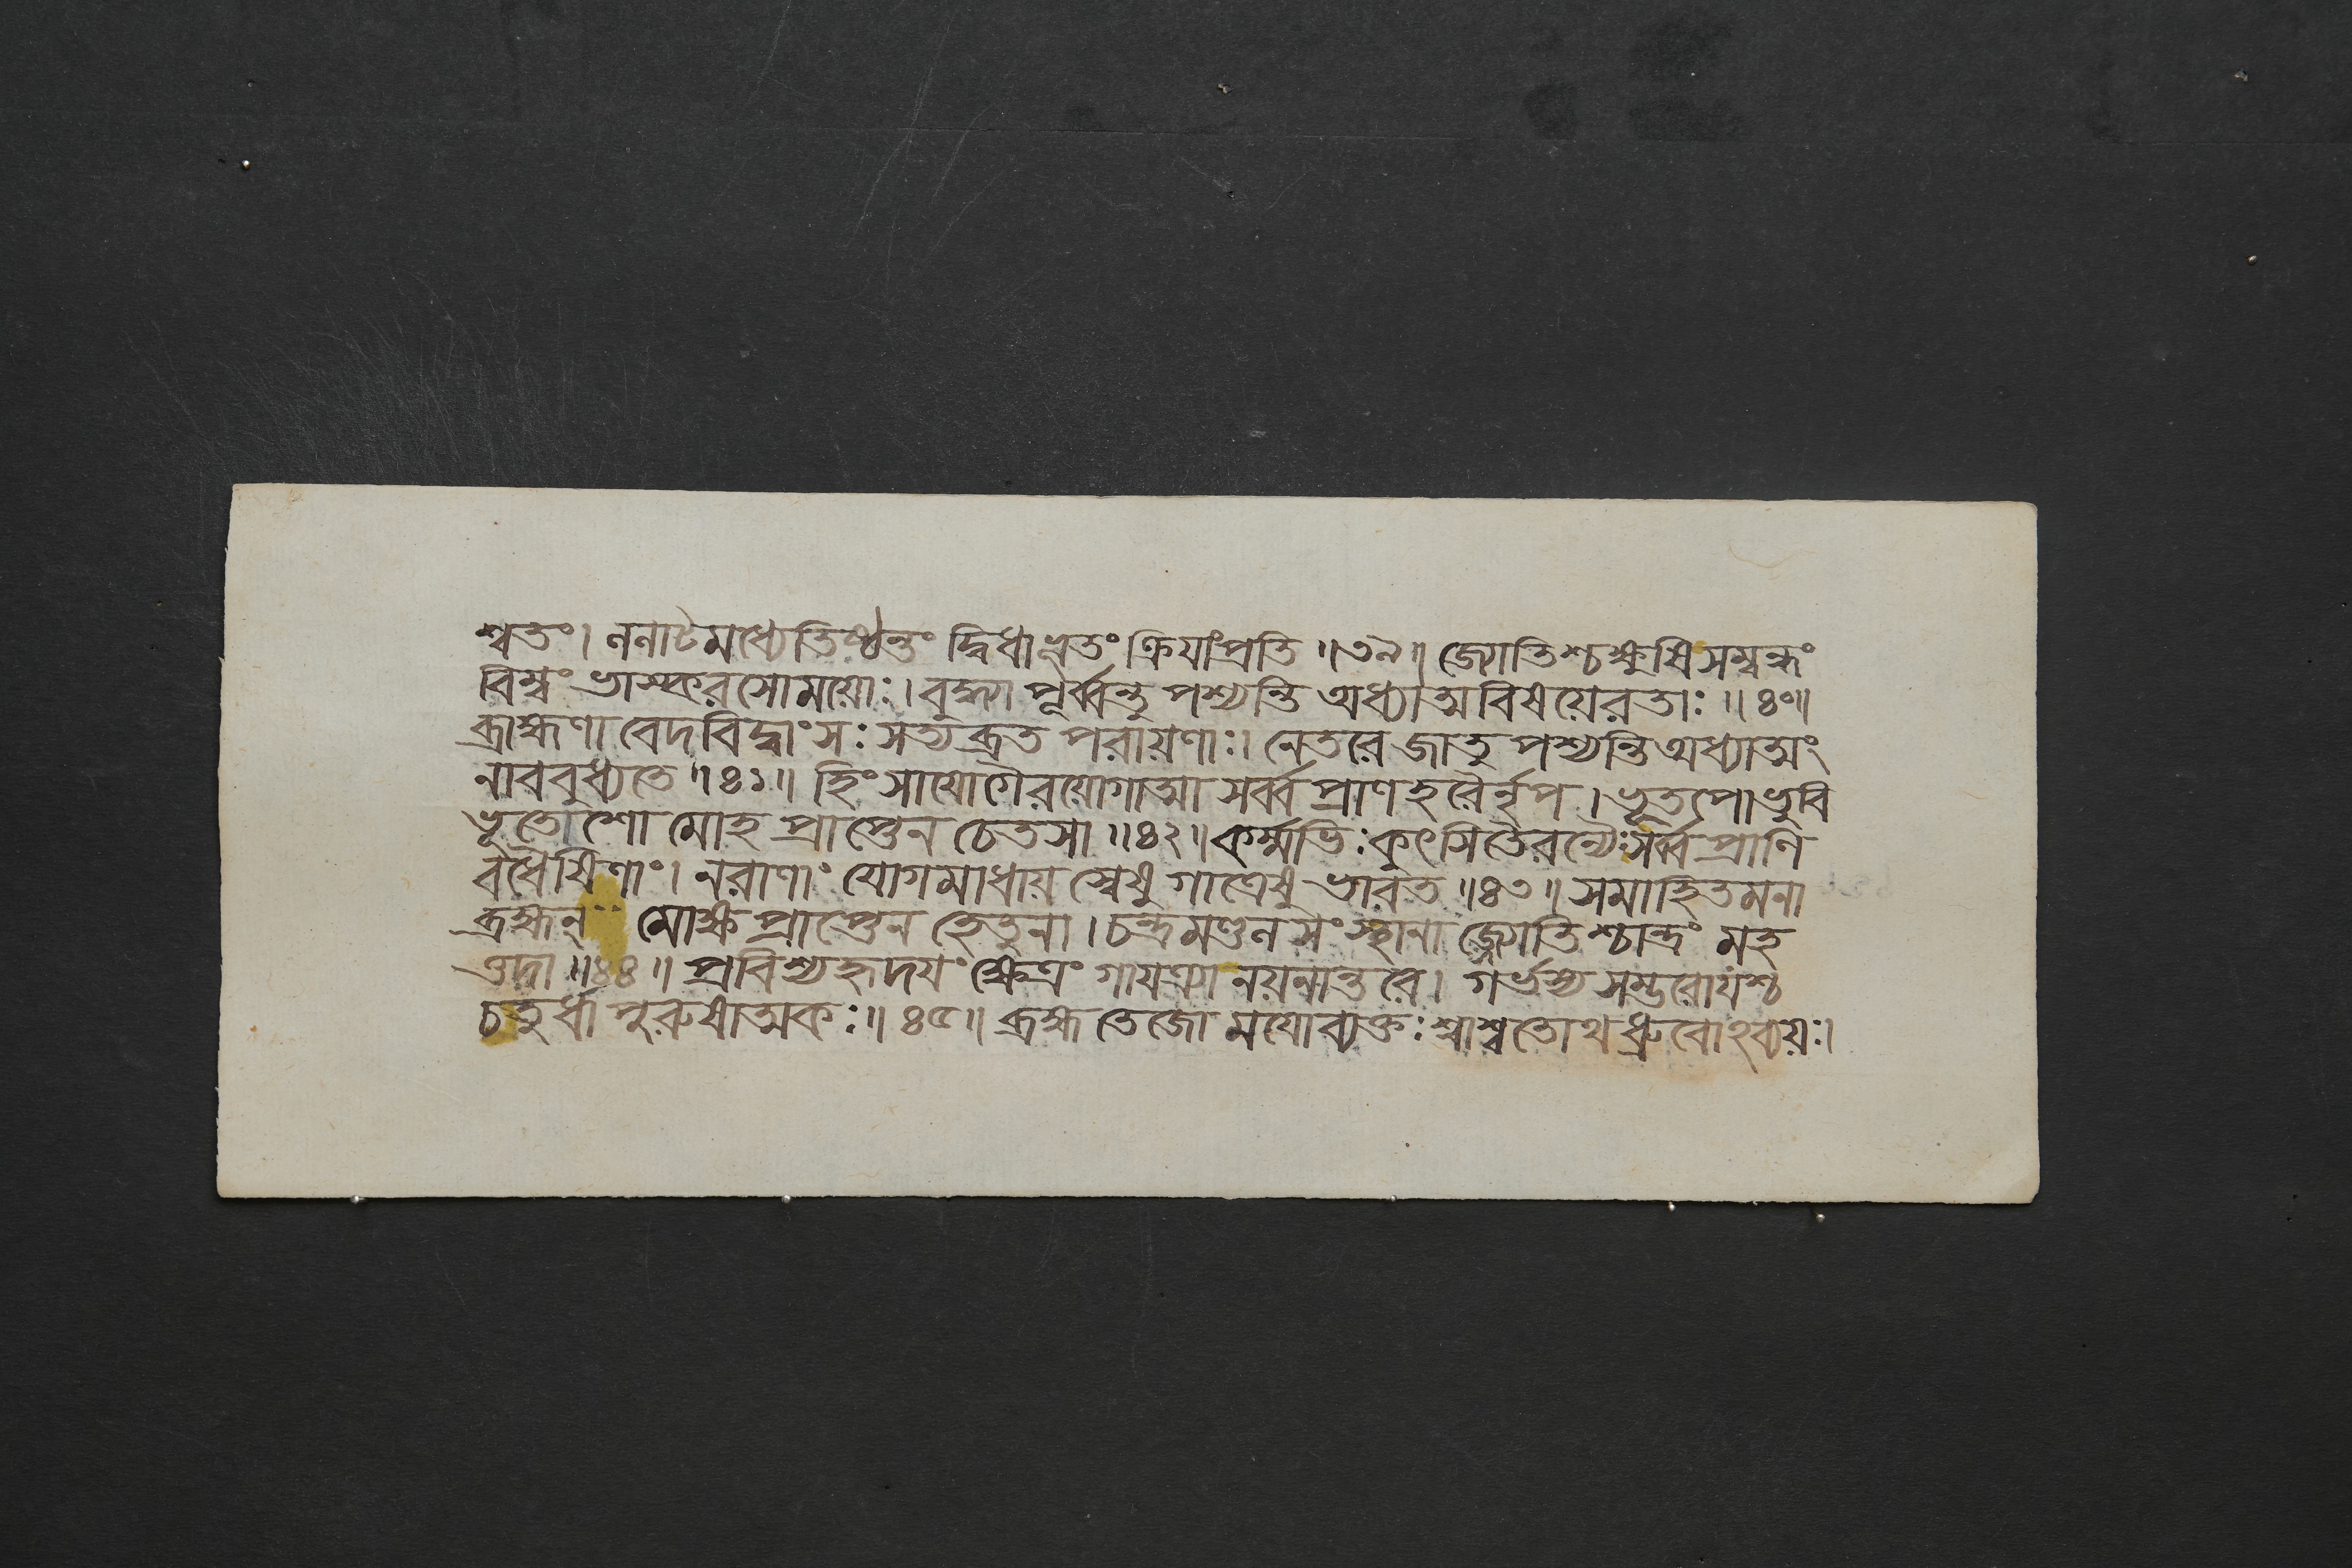 শ্বতং। ননাটমধ্যেতিষ্ঠন্তং দ্বিধাভূতং ক্রিযাংপ্রতি॥৩৯॥ জ্যোতিশ্চক্ষুষিসম্বদ্ধং
বিম্বং ভাস্করসোময়োঃ। বুদ্ধ্যা পূর্ব্বন্তু পশ্যন্তি অধ্যাত্মবিষয়েরতাঃ॥৪০॥
ব্রাহ্মণা বেদবিদ্বাংসঃ সত্যব্রত পরায়ণাঃ। নেতরে জাতু পশ্যন্তি অধ্যাত্মং
নাববুধ্যতে॥৪১॥ হিংসাযোগৈরযোগাত্মা সর্ব্বপ্রাণহরৈর্নৃপ। ভূতপো ভুবি
ভূতেশো মোহ প্রাপ্তেন চেতসা॥৪২॥ কর্ম্মভিঃ কুৎসিতৈরন্যৈঃসর্ব্বপ্রাণি
বধৈষিণাং। নরাণাং যোগমাধায় স্বেষু গাত্রেষু ভারত॥৪৩॥ সমাহিতমনা
ব্রহ্মন্ মোক্ষপ্রাপ্তেন হেতুনা। চন্দ্রমণ্ডন সংস্থানা জ্জ্যোতিশ্চান্দ্রং মহ
ত্তদা॥৪৪॥ প্রবিশ্যহৃদযং ক্ষেত্রং গাযত্র্যা নয়নান্তরে। গর্ভস্য সম্ভবোযশ্চ
চতুর্ধা পুরুষাত্মকঃ॥৪৫॥ ব্রহ্ম তেজো মযোব্যক্তঃ শাশ্বতোথ ধ্রুবোঽব্যয়ঃ।